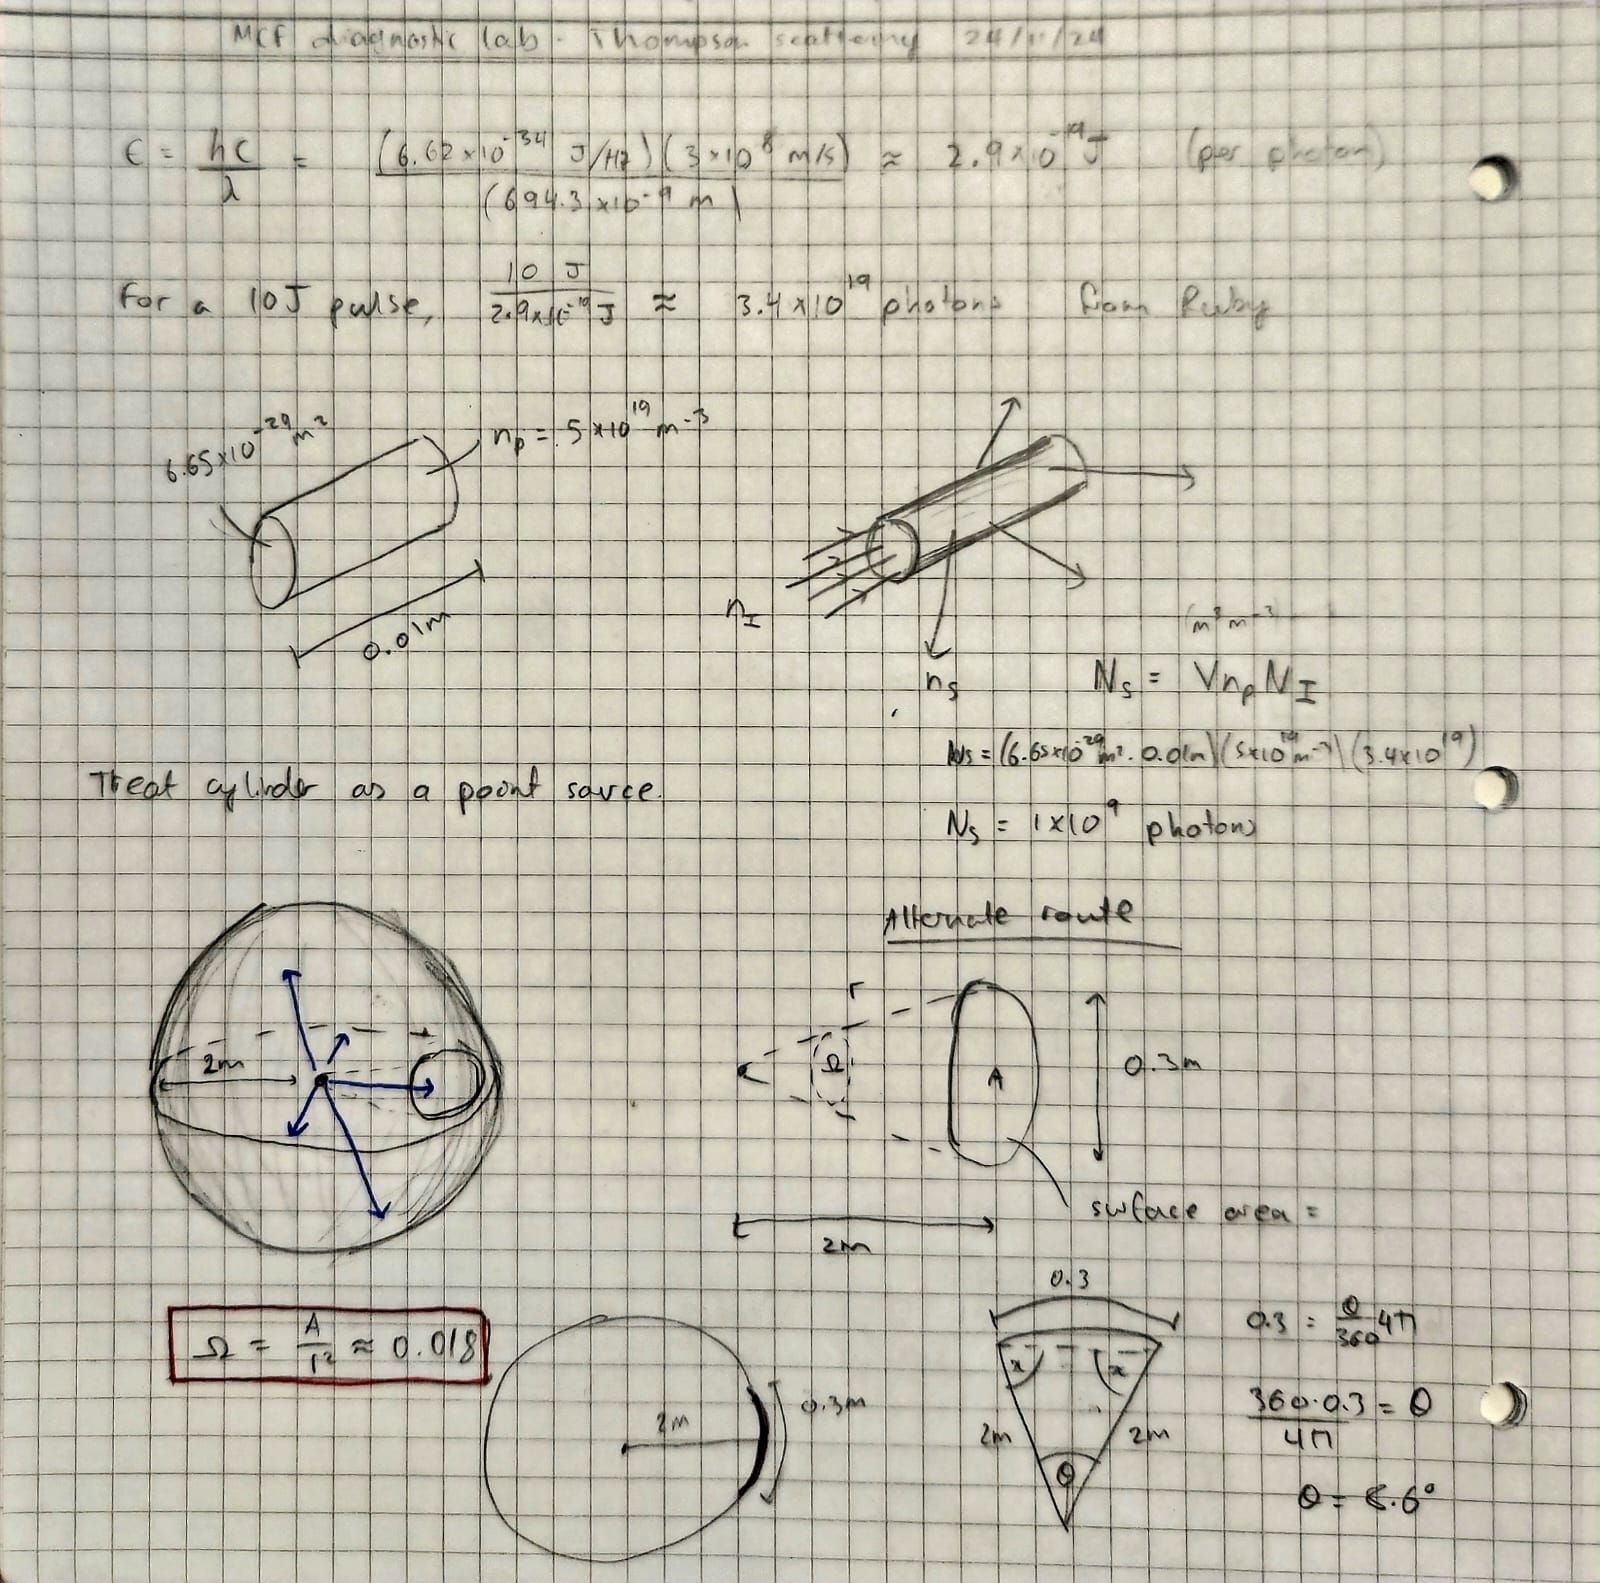 MCF diagnostic lab - Thompson scattering 24/11/24
ϵ = hc/λ = (6.62×10⁻³⁴ J/Hz)(3×10⁸ m/s)/(694.3×10⁻⁹ m) ≈ 2.9×10⁻¹⁹ J (per photon)
For a 10J pulse, 10 J/2.9×10⁻¹⁹ J ≈ 3.4×10¹⁹ photons from Ruby
6.65×10⁻²⁹m²
n_p = 5×10¹⁹m⁻³
0.01m
n_I
n_s
(m³m⁻³)
N_s = Vn_pN_I
N_s = (6.65×10⁻²⁹m². 0.01m)(5×10¹⁹m⁻³)(3.4×10¹⁹)
N_s = 1×10⁹ photons
Treat cylinder as a point source.
Alternate route
2m
r
Ω
A
0.3m
2m
surface area =
Ω = A/r² ≈ 0.018
2m
0.3m
0.3
x
x
2m
2m
θ
0.3 = θ/360 4π
360·0.3/4π = θ
θ = 8.6°